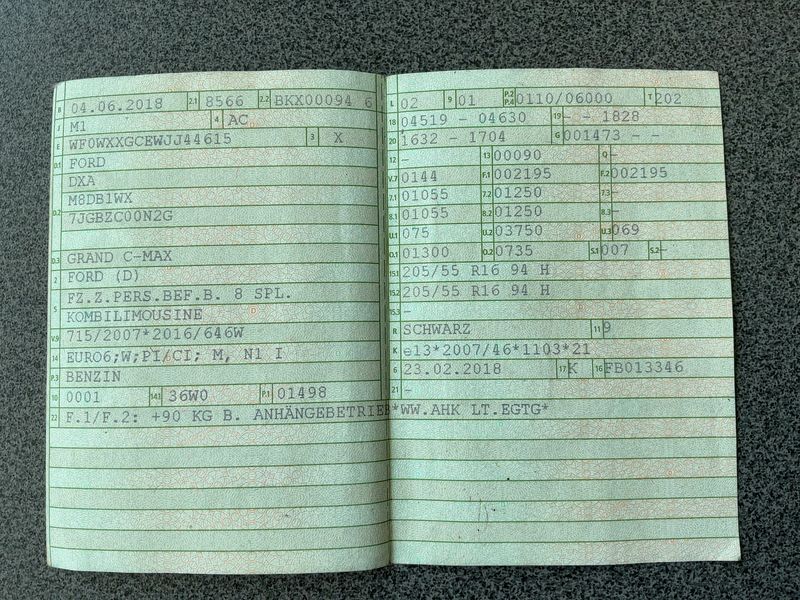 B 04.06.2018 2.1 8566 2.2 BKX00094 6
J M1 4 AC
E WF0WXXGCEWJJ44615 3 X
D.1 FORD
DXA
D.2 M8DB1WX
7JGBZC00N2G
D.3 GRAND C-MAX
2 FORD (D)
5 FZ.Z.PERS.BEF.B. 8 SPL.
KOMBILIMOUSINE
V.9 715/2007*2016/646W
14 EURO6;W;PI/CI; M, N1 I
P.3 BENZIN
10 0001 14.1 36W0 P.1 01498
22 F.1/F.2: +90 KG B. ANHÄNGEBETRIEB*WW.AHK LT.EGTG*
L 02 9 01 P.2 P.4 0110/06000 T 202
18 04519 - 04630 19 - - 1828
20 1632 - 1704 G 001473 - -
12 - 13 00090 Q -
V.7 0144 F.1 002195 F.2 002195
7.1 01055 7.2 01250 7.3 -
8.1 01055 8.2 01250 8.3 -
U.1 075 U.2 03750 U.3 069
O.1 01300 O.2 0735 S.1 007 S.2 -
15.1 205/55 R16 94 H
15.2 205/55 R16 94 H
15.3 -
R SCHWARZ 11 9
K e13*2007/46*1103*21
6 23.02.2018 17 K 16 FB013346
21 -